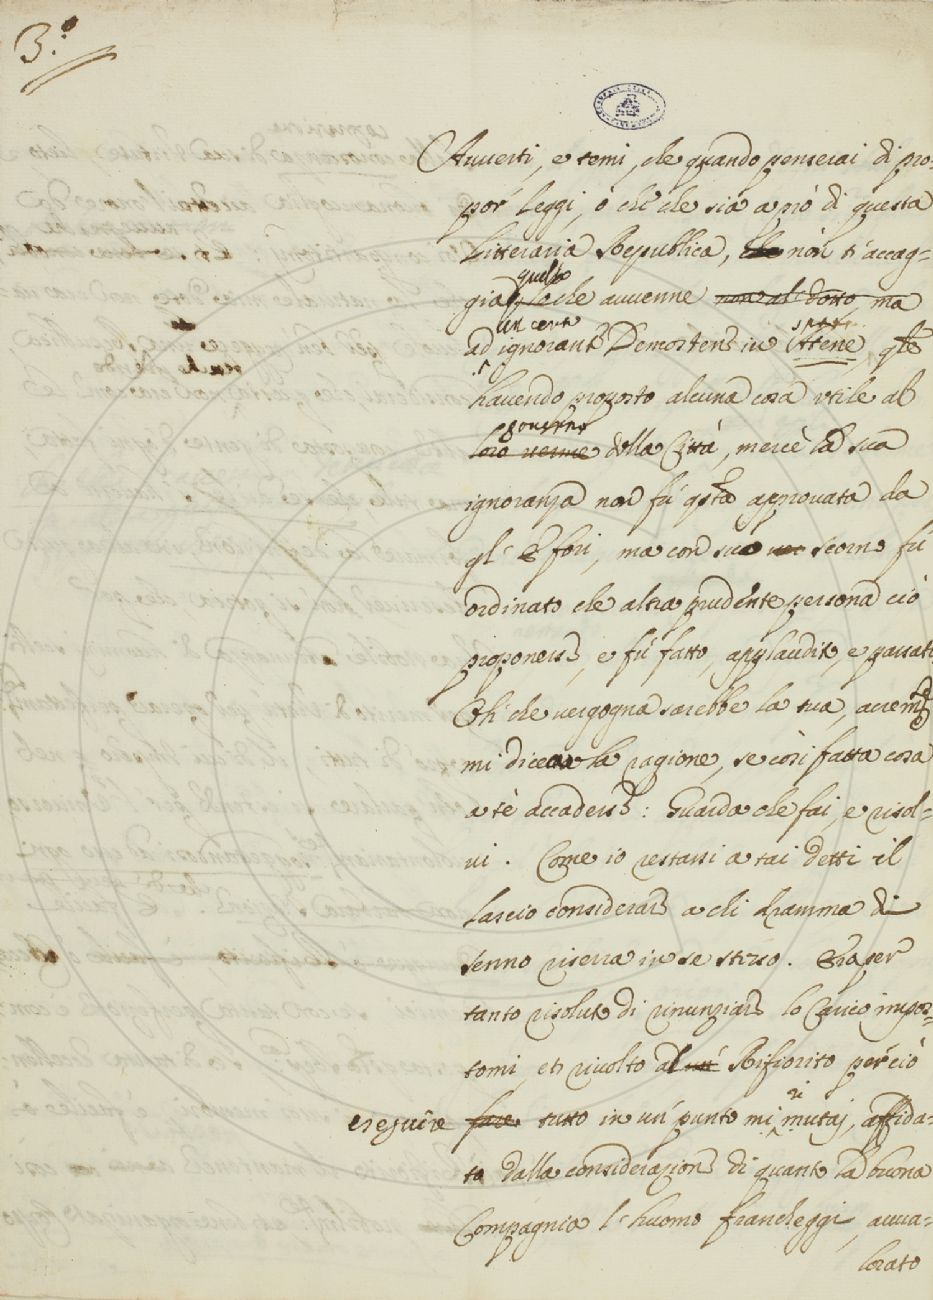 3.º
Avverti, e temi, che quando penserai di pro-
por leggi, ò chi che sia a prò di questa
Litteraria Republica, che non t'accag-
gia quello che avvenne non al dotto, ma
ad un certo ignorante Demostene in Atene, qle
havendo proposto alcuna cosa utile al
loro governo della Città, mercè la sua
ignoranza non fù qsta approvata da
gl' Efori, ma con suo scorno fù
ordinato che altra prudente persona ciò
proponesse, e fù fatto, applaudito, e passato
Oh che vergogna sarebbe la tua,
mi dicea la ragione, se così fatta cosa
a tè accadesse: Guarda che fai, e risol-
vi. Come io restassi a tai detti il
lascio considerare a chi dramma di
senno riserva in se stesso. Era per
tanto risoluto di rinunziare lo Carico impos-
tomi, et rivolto al Rifiorito perciò
eseguire fare tutto in un' punto mi ri mutaj, affida-
ta dalla considerazione di quanto la buona
Compagnia l'huomo francheggi, avva-
lorato